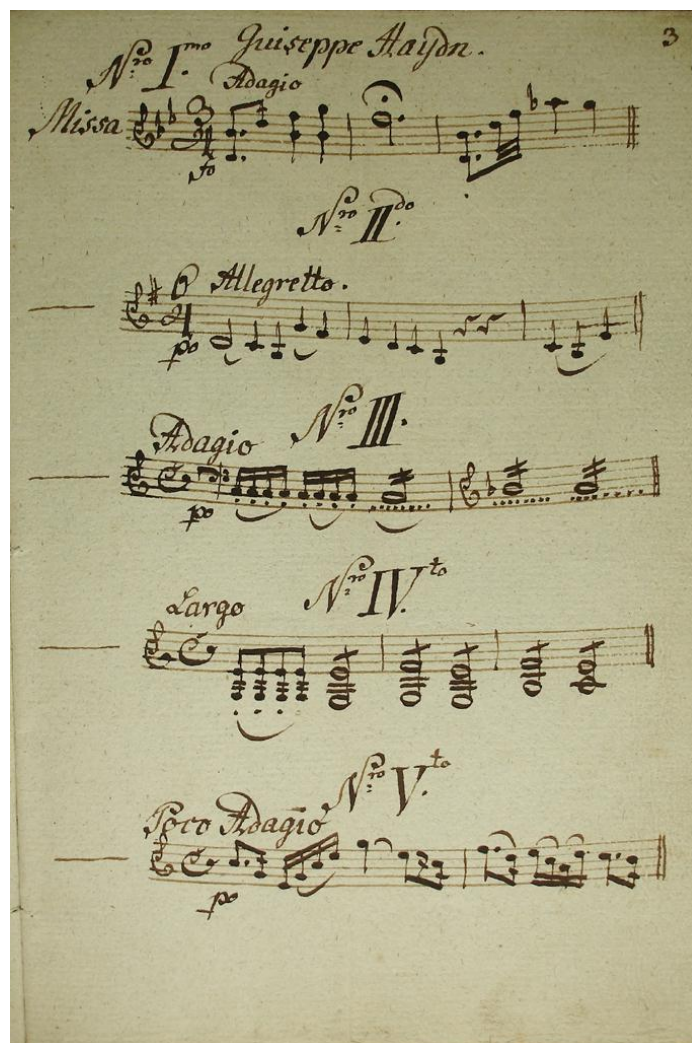 3
Guiseppe Haydn.
Nro: I.mo
Adagio
Missa
fo
Nro: II.do
Allegretto.
po
Nro: III.
Adagio
po
Nro: IV.to
Largo
Nro: V.to
Poco Adagio
po